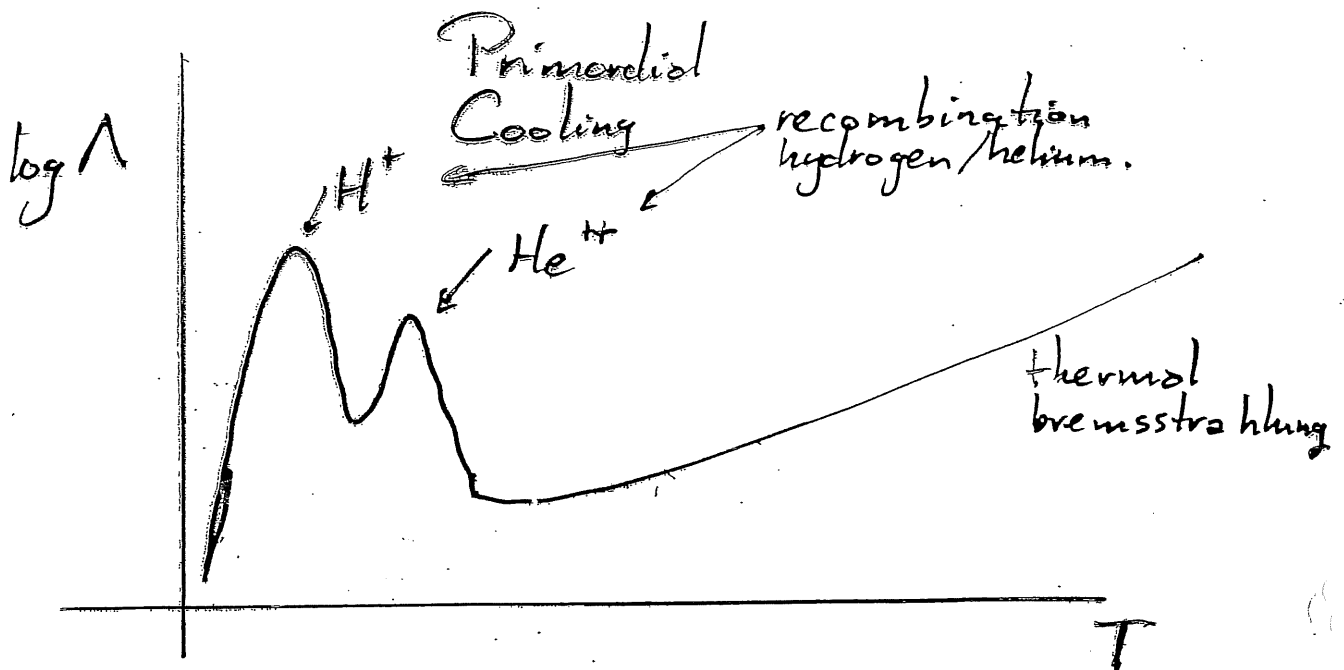 Primordial
Cooling
recombination
hydrogen/helium.
log Λ
H⁺
He⁺⁺
thermal
bremsstrahlung
T